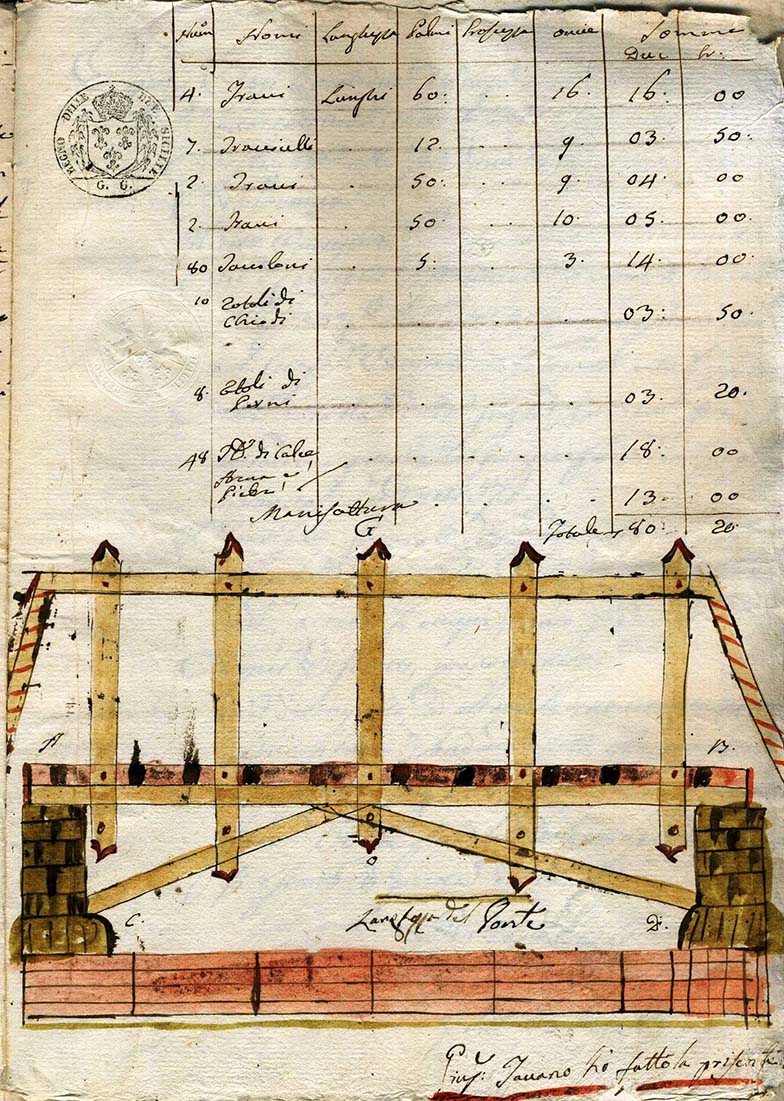 Num Nomi Larghezza Palmi Grossezza oncie Somme
Duc. Gr:
4. Travi Lunghi 60. . . 16. 16. 00
7. Travicelli . 12. . . 9. 03. 50.
2. Travi . 50. . . 9. 04. 00
2. Travi . 50 . . 10. 05. 00.
80 Tavoloni . 5. . . 3. 14. 00.
10 Rotoli di
Chiodi . . . . 03. 50.
8. Rotoli di
Perni . . . 03. 20.
48 di Calce 18. 00
Arena e
Pietre
Manifattura . . . 13. 00
Totale 80. 20
REGNO DELLE DUE SICILIE
G. G.
G
A
B.
C.
D.
Larghezza del Ponte
Giuse: Tavano hò fatto la presente